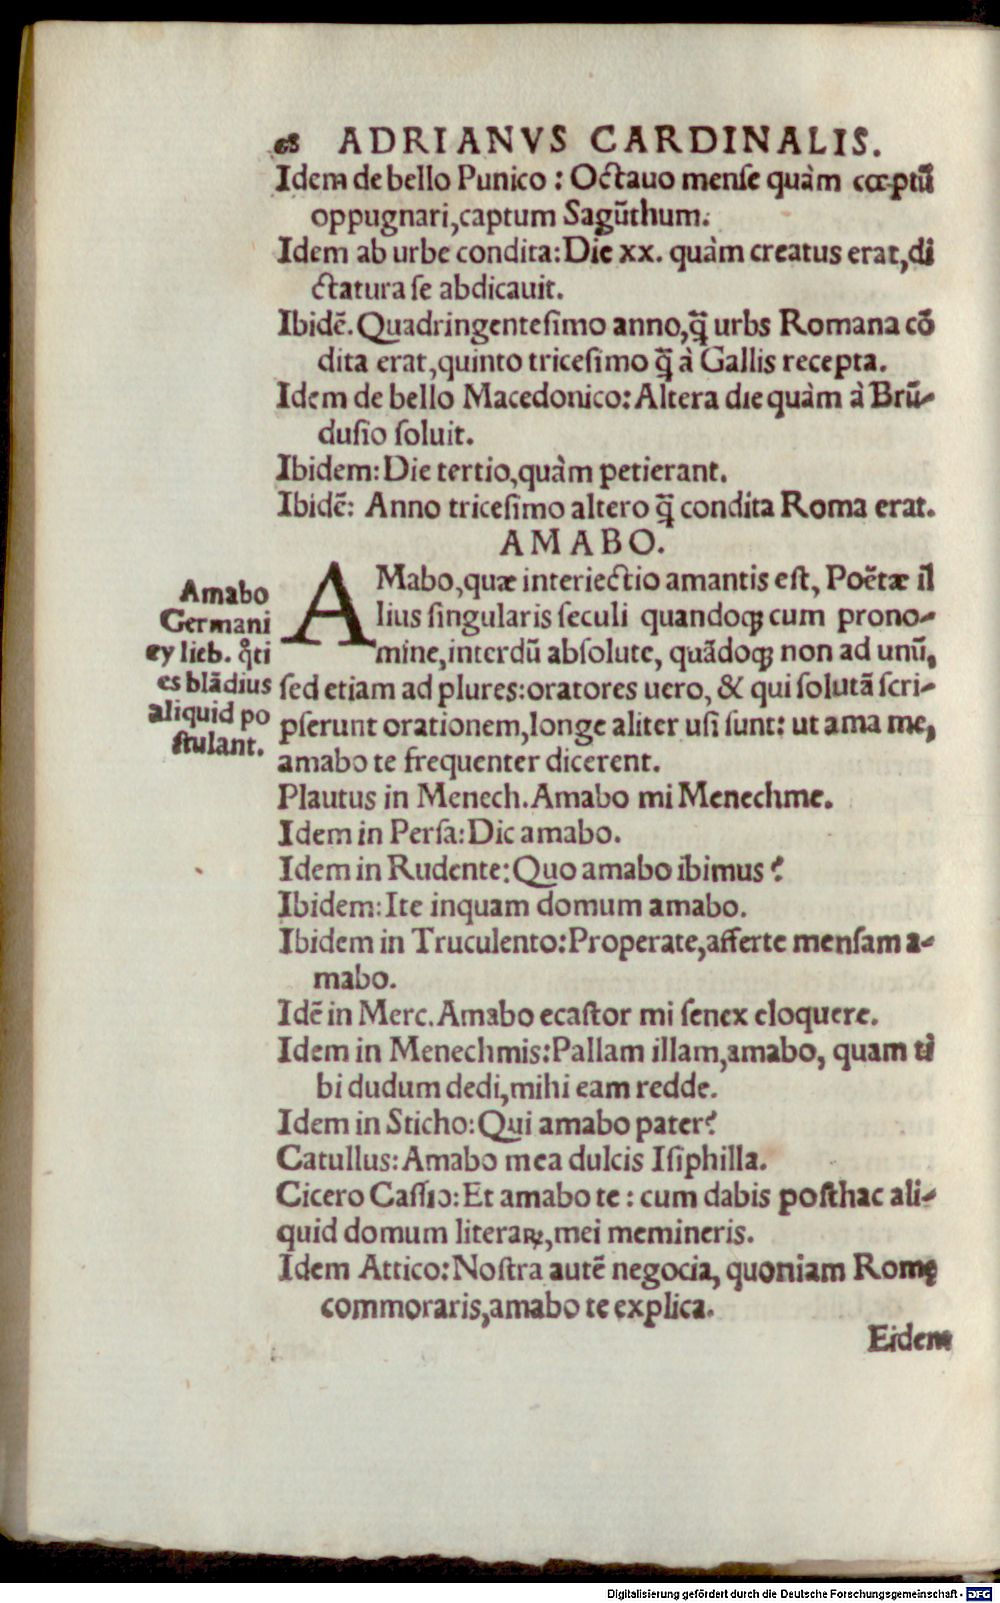 68 ADRIANVS CARDINALIS.
Idem de bello Punico : Octauo menſe quàm cœptũ
oppugnari,captum Sagũthum.
Idem ab urbe condita:Die xx. quàm creatus erat,di
ctatura ſe abdicauit.
Ibidẽ. Quadringenteſimo anno,q̃ urbs Romana cõ
dita erat,quinto triceſimo q̃ à Gallis recepta.
Idem de bello Macedonico: Altera die quàm à Brũ-
duſio ſoluit.
Ibidem: Die tertio,quàm petierant.
Ibidẽ: Anno triceſimo altero q̃ condita Roma erat.
AMABO.
AMabo,quæ interiectio amantis eſt, Poëtæ il
lius ſingularis ſeculi quandoq; cum prono-
mine,interdũ abſolute, quãdoq; non ad unũ,
ſed etiam ad plures:oratores uero, & qui ſolutã ſcri-
pſerunt orationem,longe aliter uſi ſunt: ut ama me,
amabo te frequenter dicerent.
Amabo
Germani
ey lieb. q̃ti
es blãdius
aliquid po
ſtulant.
Plautus in Menech. Amabo mi Menechme.
Idem in Perſa: Dic amabo.
Idem in Rudente: Quo amabo ibimus ?
Ibidem: Ite inquam domum amabo.
Ibidem in Truculento: Properate,afferte menſam a-
mabo.
Idẽ in Merc. Amabo ecaſtor mi ſenex eloquere.
Idem in Menechmis: Pallam illam,amabo, quam ti
bi dudum dedi,mihi eam redde.
Idem in Sticho: Qui amabo pater?
Catullus: Amabo mea dulcis Iſiphilla.
Cicero Caſſio: Et amabo te : cum dabis poſthac ali-
quid domum literaꝝ,mei memineris.
Idem Attico: Noſtra autẽ negocia, quoniam Romę
commoraris,amabo te explica.
Eidem
Digitalisierung gefördert durch die Deutsche Forschungsgemeinschaft - DFG